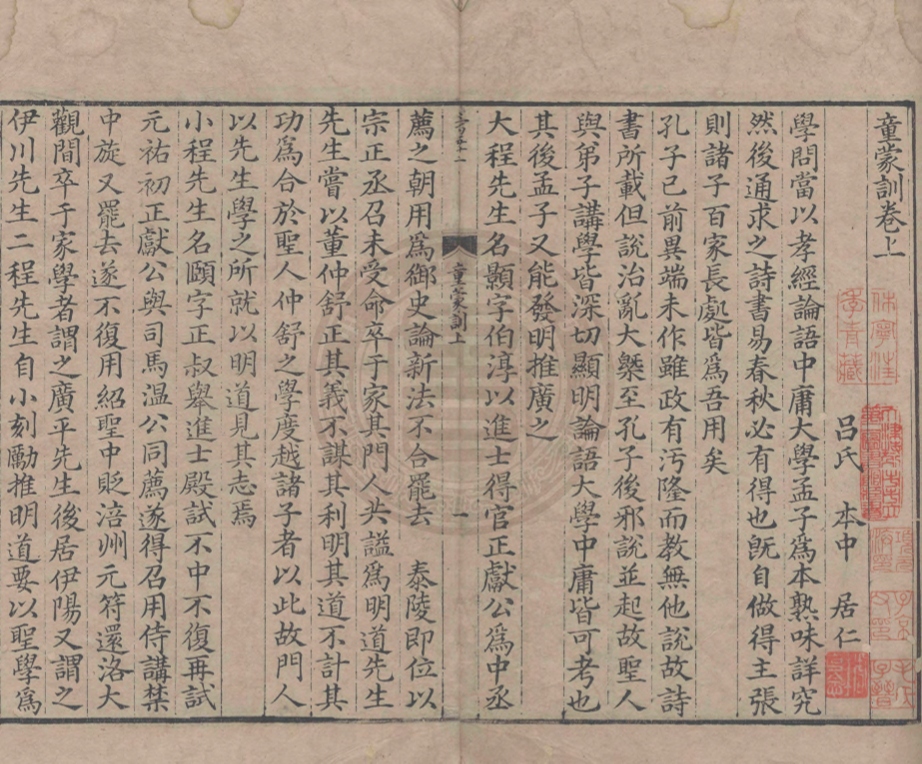 童蒙訓卷上
呂氏 本中 居仁
學問當以孝經論語中庸大學孟子爲本熟味詳究
然後通求之詩書易春秋必有得也旣自做得主張
則諸子百家長處皆爲吾用矣
孔子已前異端未作雖政有汚隆而敎無他說故詩
書所載但說治亂大槩至孔子後邪說並起故聖人
與弟子講學皆深切顯明論語大學中庸皆可考也
其後孟子又能發明推廣之
大程先生名顥字伯淳以進士得官正獻公爲中丞
童蒙訓上
一
薦之朝用爲御史論新法不合罷去 泰陵卽位以
宗正丞召未受命卒于家其門人共謚爲明道先生
先生嘗以董仲舒正其義不謀其利明其道不計其
功爲合於聖人仲舒之學度越諸子者以此故門人
以先生學之所就以明道見其志焉
小程先生名頤字正叔舉進士殿試不中不復再試
元祐初正獻公與司馬溫公同薦遂得召用侍講禁
中旋又罷去遂不復用紹聖中貶涪州元符還洛大
觀間卒于家學者謂之廣平先生後居伊陽又謂之
伊川先生二程先生自小刻勵推明道要以聖學爲